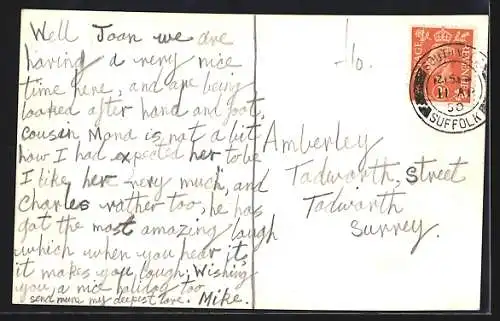 Well Joan we are
having a very nice
time here, and are being
looked after hand and foot,
cousin Mand is not a bit
how I had expected her to be
I like her very much, and
Charles rather too, he has
got the most amazing laugh
which when you hear it,
it makes you laugh, Wishing
you a nice holiday too
send mum my deepest love. Mike.
To.
Amberley
Tadworth, Street
Tadworth
Surrey.
11
50
SUFFOLK